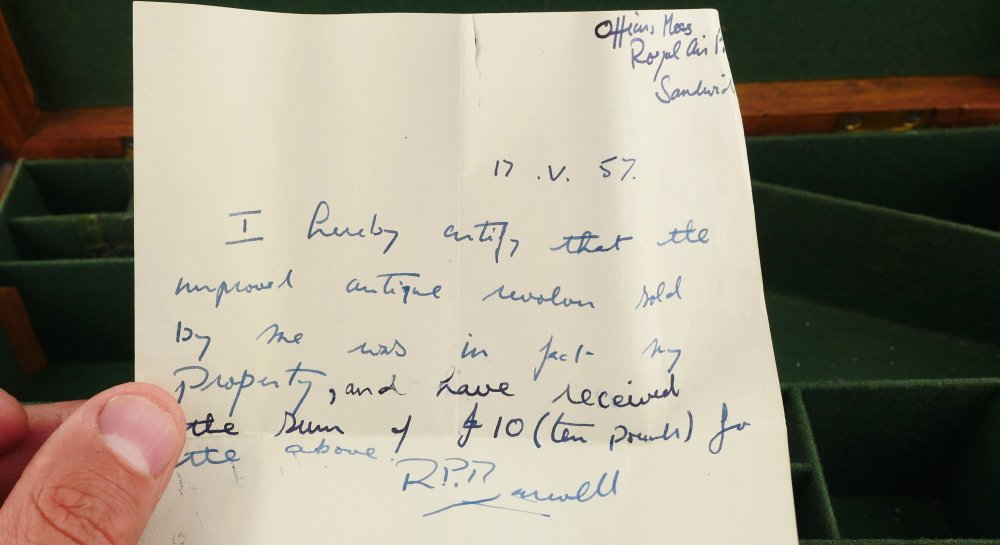 Officers Mess
Royal Air F
Sandwic
17 . V. 57.
I hereby certify that the
improved antique revolver sold
by me was in fact my
Property, and have received
the sum of £10 (ten pounds) for
the above.